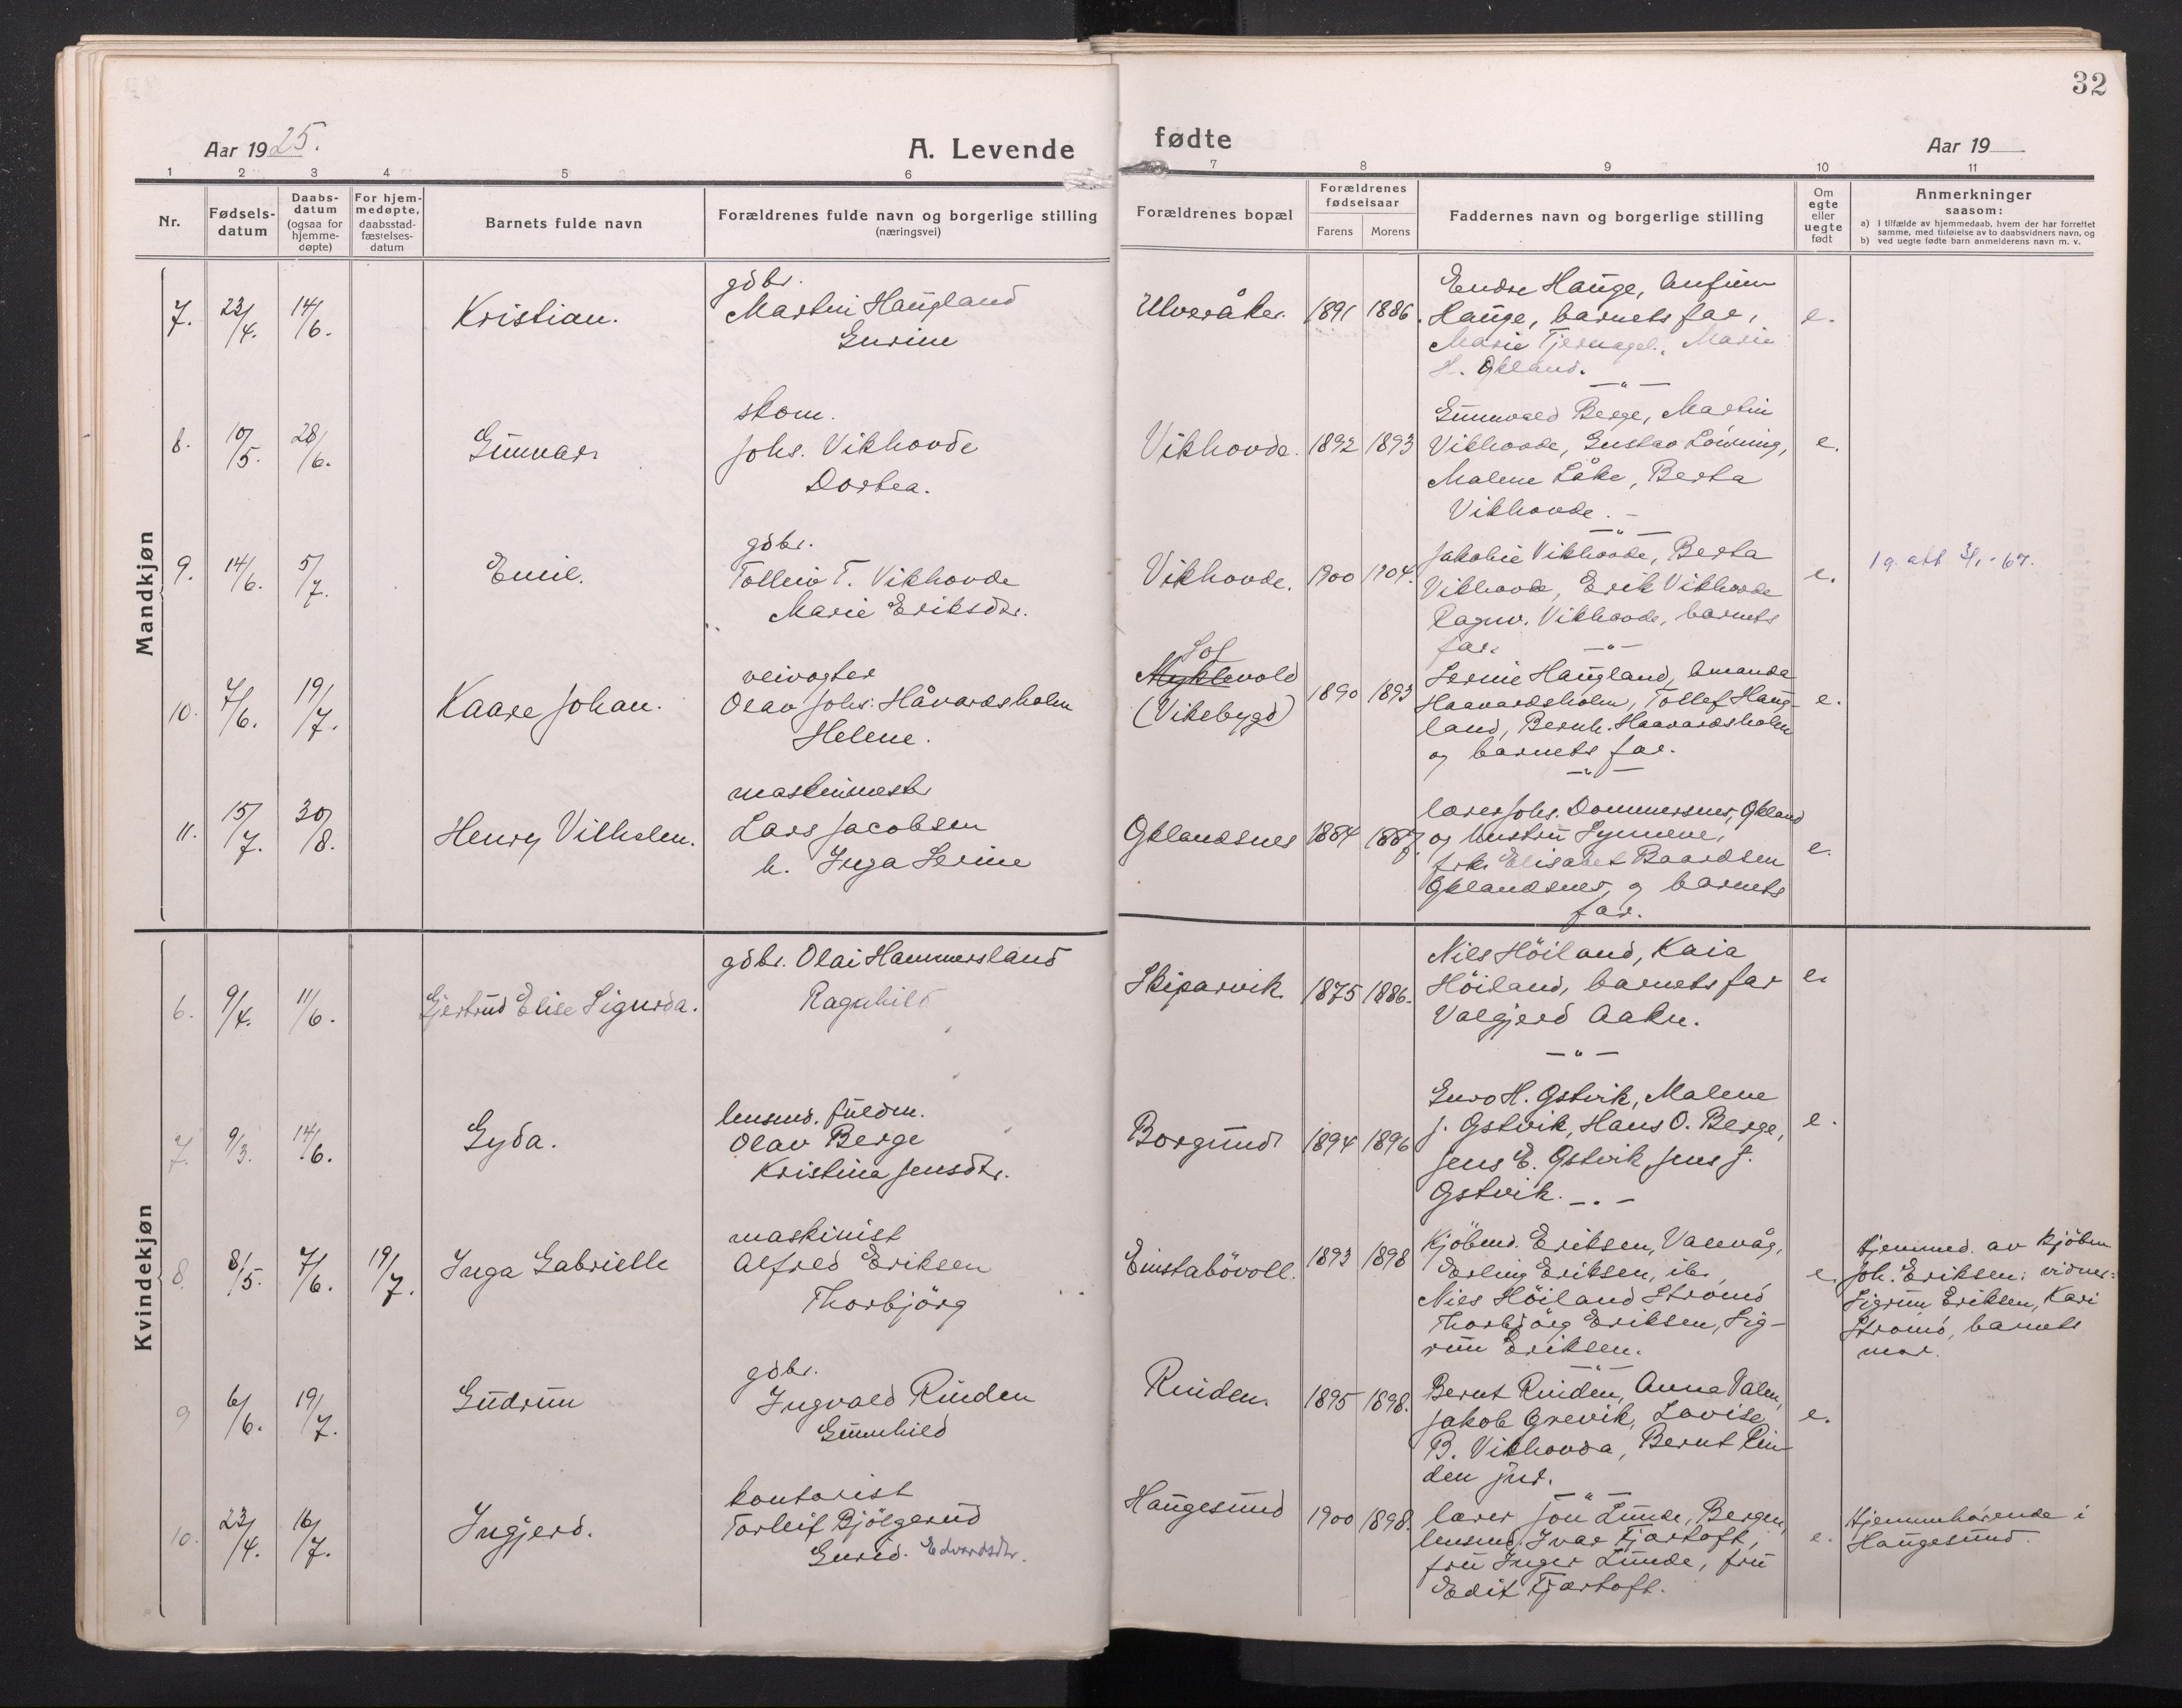 32
Aar 1925.
A. Levende
fødte
Aar 19
1 2 3 4 5 6 7 8 9 10 11
Nr.
Fødsels-
datum
Daabs-
datum
(ogsaa for
hjemme-
døpte)
For hjem-
medøpte,
daabsstad-
fæstelses-
datum
Barnets fulde navn
Forældrenes fulde navn og borgerlige stilling
(næringsvei)
Forældrenes bopæl
Forældrenes
fødselsaar
Farens Morens
Faddernes navn og borgerlige stilling
Om
egte
eller
uegte
født
Anmerkninger
saasom:
a) i tilfælde av hjemmedaab, hvem der har forrettet
samme, med tilføielse av to daabsvidners navn, og
b) ved uegte fødte barn anmelderens navn m. v.
Mandkjøn
7. 23/4. 14/6. Kristian.
gdbr.
Martin Haugland
Gurine
Ulveråker. 1891 1886.
Endre Hauge, Anfinn
Hauge, barnets far,
Marie Tjernagel, Marie
H. Økland.
e.
8. 10/5. 28/6. Gunnar
skom.
Johs. Vikhovde
Dortea.
Vikhovde. 1892 1893
Gunnvald Berge, Martin
Vikhovde, Gustav Lönning,
Malene Låke, Berta
Vikhovde.
e.
9. 14/6. 5/7. Emil.
gdbr.
Tolleiv T. Vikhovde
Marie Eriksdtr.
Vikhovde. 1900 1904.
Jakobie Vikhovde, Berta
Vikhovde, Erik Vikhovde
Ragnv. Vikhovde, barnets
far.
e.
10. 7/6. 19/7. Kaare Johan.
veivogter
Olav Johs. Håvardsholm
Helene.
Myklevold
(Vikebygd)
1890 1893
Serine Haugland, Amanda
Haavardsholm, Tollef Haug-
land, Bernh. Haavardsholm
og barnets far.
e.
11. 15/7. 30/8. Henry Vilhelm.
maskinmestr
Lars Jacobsen
h. Inga Serine
Øklandsnes 1884 1887.
lærer Johs. Dommersnes, Økland
og hustru Synneve,
frk. Elisabet Baardsen
Øklandsnes, og barnets
far.
e.
Kvindekjøn
6. 9/4. 11/6. Gjertrud Elise Sigurda.
gdbr. Olai Hammersland
Ragnhild
Skiparvik 1875 1886.
Nils Höiland, Kaia
Höiland, barnets far
Valgjerd Aakre.
e.
7. 9/3. 14/6. Gyda.
lensmd. fuldm.
Olav Berge
Kristina Jensdtr.
Borgund 1894 1896
Guro H. Østvik, Malene
J. Østvik, Hans O. Berge,
Jens E. Østvik, Jens J.
Østvik.
e.
8. 8/5. 7/6. 19/7. Inga Gabrielle
maskinist
Alfred Eriksen
Thorbjörg
Einstabövoll. 1893 1898
Kjöbmd. Eriksen, Vanvåg,
Erling Eriksen, ib.,
Nils Höiland Stromö
Thorbjörg Eriksen, Sig-
run Eriksen.
e.
Hjemmed. av kjöbm
Joh. Eriksen; vidner:
Sigrun Eriksen, Kari
Stromö, barnets
mor.
9 6/6. 19/7. Gudrun
gdbr.
Ingvald Rinden
Gunnhild
Rinden. 1895 1898.
Bernt Rinden, Anna Valen,
Jakob Grevik, Lovise
B. Vikhovda, Bernt Rin-
den jnr.
e.
10. 23/4. 16/7. Ingjerd.
kontorist
Torleif Bjölgerud
Gurid. Edvardsdtr.
Haugesund 1900 1898.
lærer Jon Lunde, Bergen,
lensmd. Ivar Fjærtoft,
fru Inger Lunde, fru
Edit Fjærtoft.
e.
Hjemmehörende i
Haugesund.